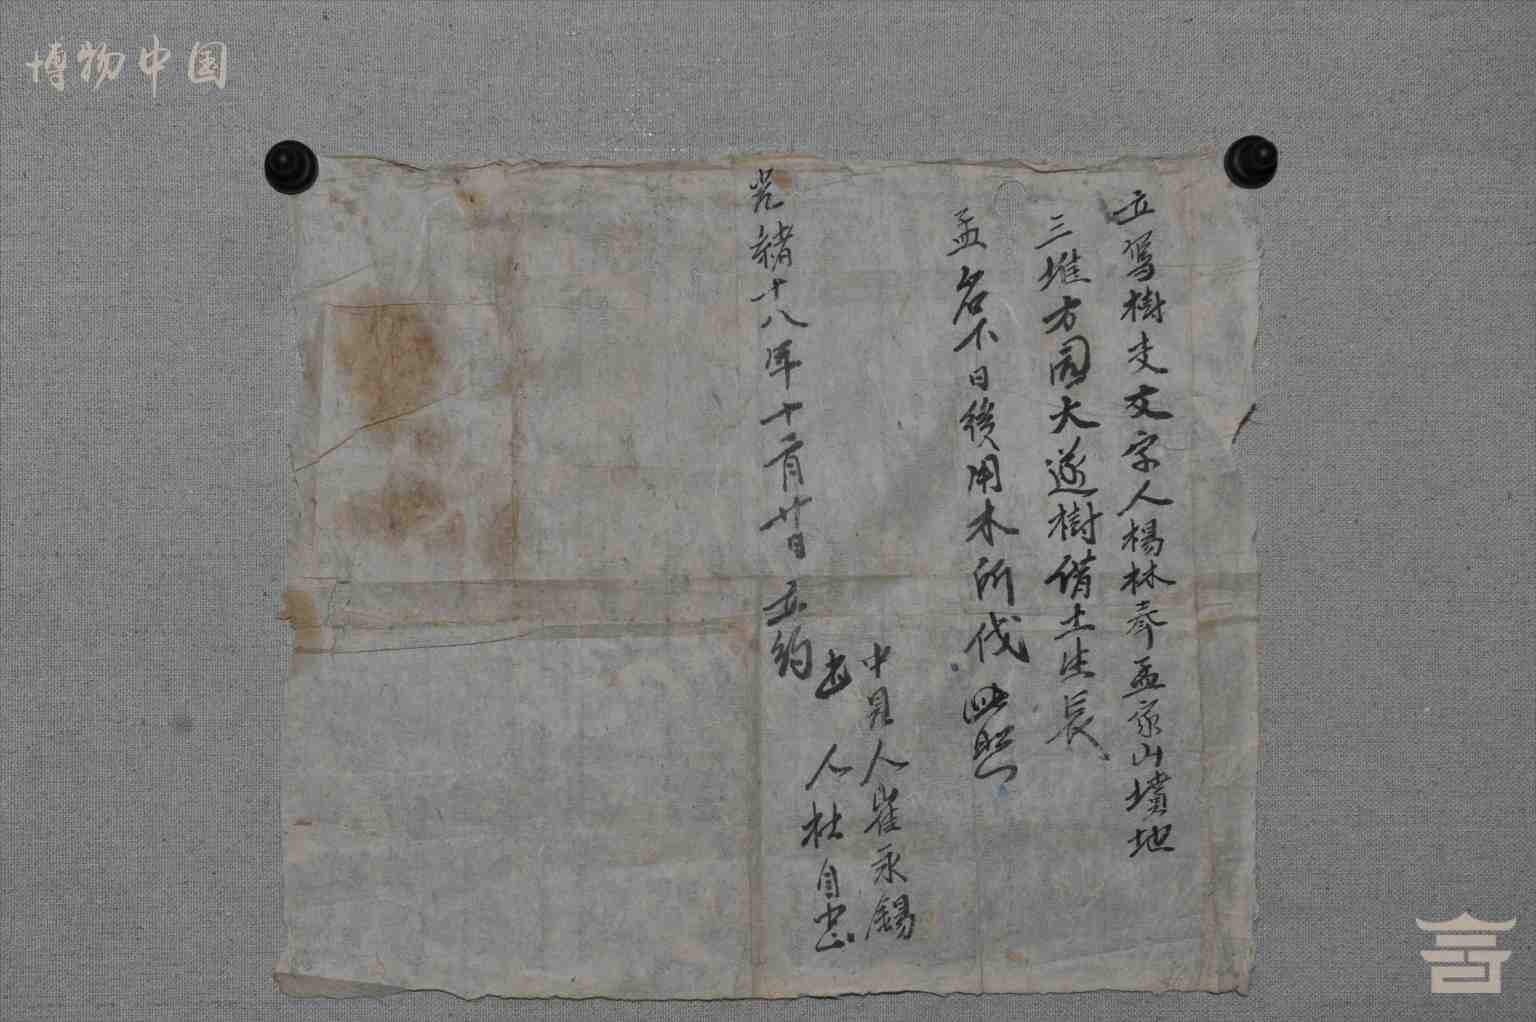 博物中国
立寫樹支文字人楊林奉孟家山墳地
三堆方園大遂樹借土生長
孟名下日後用木所伐 照
光緒十八年十二月廿日 立約
中見人崔永錫
人杜自